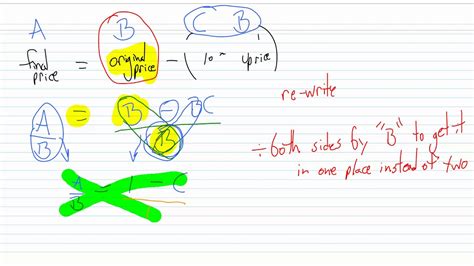 A B C B
final price = original price - ( price)
A = B - BC
B B
A = 1 - C
B
re-write
÷ both sides by "B" to get it
in one place instead of two